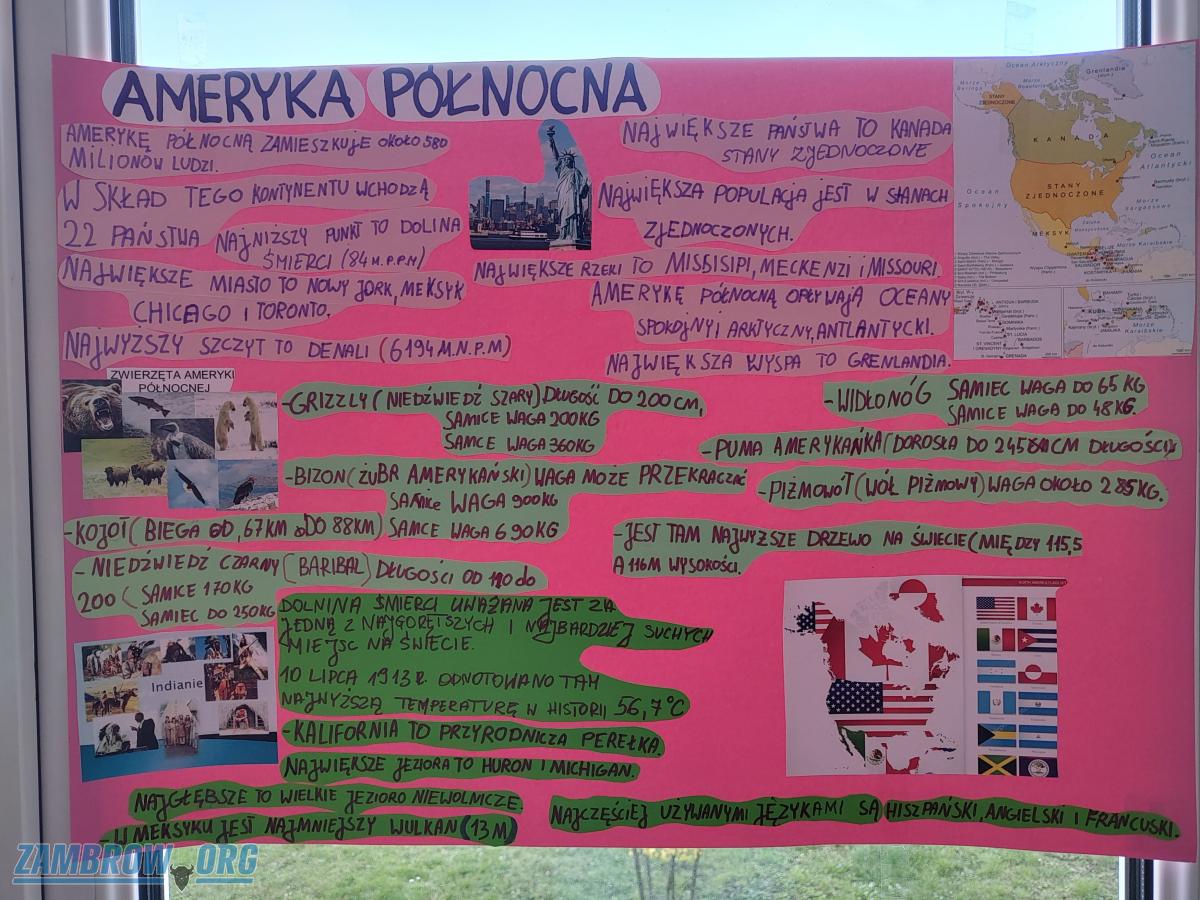 AMERYKA PÓŁNOCNA
AMERYKĘ PÓŁNOCNĄ ZAMIESZKUJE OKOŁO 580
MILIONÓW LUDZI.
W SKŁAD TEGO KONTYNENTU WCHODZĄ
22 PAŃSTWA
NAJNIŻSZY PUNKT TO DOLINA
ŚMIERCI (84 M.P.P.M)
NAJWIĘKSZE MIASTO TO NOWY JORK, MEKSYK
CHICAGO I TORONTO.
NAJWYŻSZY SZCZYT TO DENALI (6194 M.N.P.M)
NAJWIĘKSZE PAŃSTWA TO KANADA
STANY ZJEDNOCZONE
NAJWIĘKSZA POPULACJA JEST W STANACH
ZJEDNOCZONYCH.
NAJWIĘKSZE RZEKI TO MISSISIPI, MECKENZI I MISSOURI.
AMERYKĘ PÓŁNOCNĄ OPŁYWAJĄ OCEANY
SPOKOJNY I ARKTYCZNY, ANTLANTYCKI.
NAJWIĘKSZA WYSPA TO GRENLANDIA.
Ocean Arktyczny
Grenlandia
STANY
ZJEDNOCZONE
KANADA
Ocean
Atlantycki
STANY
ZJEDNOCZONE
Ocean
Spokojny
MEKSYK
Morze Karaibskie
KUBA
Morze
Karaibskie
ZWIERZĘTA AMERYKI
PÓŁNOCNEJ
-GRIZZLY (NIEDŹWIEDŹ SZARY) DŁUGOŚĆ DO 200 CM,
SAMICE WAGA 200KG
SAMCE WAGA 360KG
-BIZON (ŻUBR AMERYKAŃSKI) WAGA MOŻE PRZEKRACZAĆ
SAMICE WAGA 900KG
SAMCE WAGA 690KG
-KOJOT (BIEGA OD, 67KM DO 88KM)
-NIEDŹWIEDŹ CZARNY (BARIBAL) DŁUGOŚCI OD 110 do
200 (SAMICE 170KG
SAMIEC DO 250KG
-WIDŁORÓG SAMIEC WAGA DO 65 KG
SAMICE WAGA DO 48KG.
-PUMA AMERYKAŃKA (DOROSŁA DO 245 CM DŁUGOŚCI)
-PIŻMOWÓŁ (WÓŁ PIŻMOWY) WAGA OKOŁO 285KG.
-JEST TAM NAJWYŻSZE DRZEWO NA ŚWIECIE (MIĘDZY 115,5
A 116M WYSOKOŚCI.
Indianie
DOLNINA ŚMIERCI UWAŻANA JEST ZA
JEDNĄ Z NAJGORĘTSZYCH I NAJBARDZIEJ SUCHYCH
MIEJSC NA ŚWIECIE.
10 LIPCA 1913R. ODNOTOWANO TAM
NAJWYŻSZĄ TEMPERATURĘ W HISTORII 56,7°C
-KALIFORNIA TO PRZYRODNICZA PEREŁKA.
NAJWIĘKSZE JEZIORA TO HURON I MICHIGAN.
NAJGŁĘBSZE TO WIELKIE JEZIORO NIEWOLNICZE.
-W MEKSYKU JEST NAJMNIEJSZY WULKAN (13 M)
NAJCZĘŚCIEJ UŻYWANYMI JĘZYKAMI SĄ HISZPAŃSKI, ANGIELSKI I FRANCUSKI.
ZAMBROW.ORG